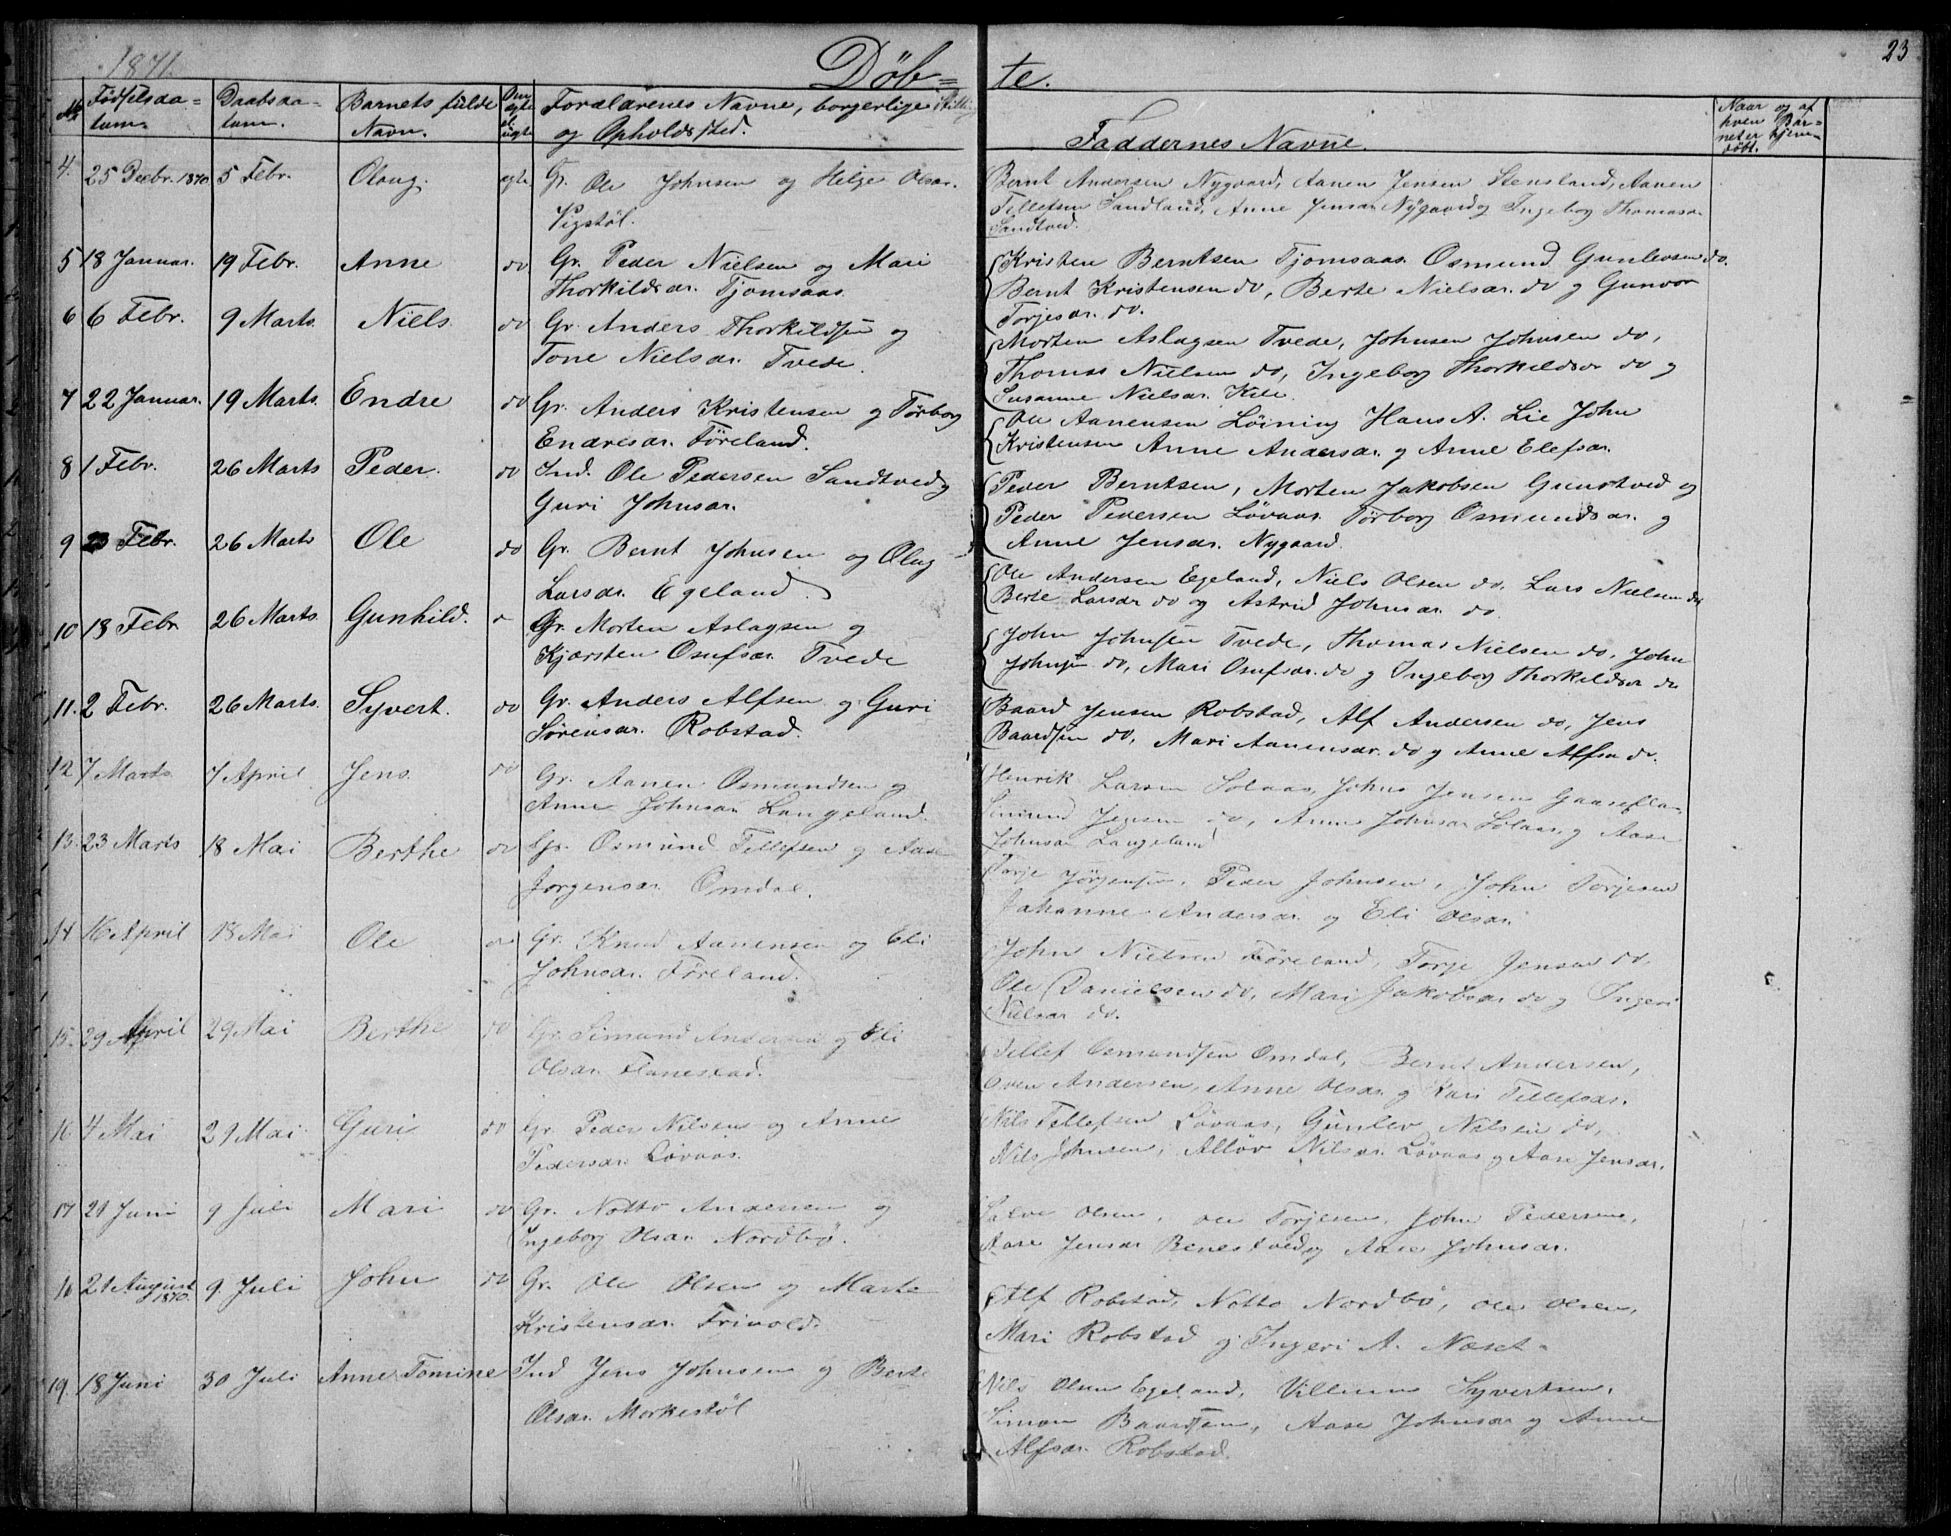 23
1871.
Døb= te.
No Fødselsda= Daabsda= Barnets fulde Om ægte Forældrenes Navne, borgerlige Stilling
tum. tum. Navn. el. uægte og Opholdssted.
Faddernes Navne. Naar og af hven Bar= net er hjem= døbt.
4. 25 Decbr. 1870 5 Febr. Olaug. ægte Gr. Ole Johnsen og Helge Olsdr.
Vigstøl.
Bernt Andersen Nygaard, Aanen Jensen Stensland, Aanen
Tellefsen Sandland, Anne Jensdr Nygaard og Ingeborg Thomasdr
Sandtved.
5 18 Januar. 19 Febr. Anne do Gr. Peder Nielsen og Mari
Thorkildsdr. Tjomsaas
Kristen Berntsen Tjomsaas Osmund Gunlevsen do.
Bernt Kristensen do, Berte Nielsdr. do og Gunvor
Torjesdr. do.
6 6 Febr. 9 Marts Niels do Gr. Anders Thorkildsen og
Tone Nielsdr. Tvede.
Morten Aslagsen Tvede, Johnsen Johnsen do,
Thomas Nielsen do, Ingeborg Thorkildsdr do og
Susanne Nielsdr. Kile.
7 22 Januar. 19 Marts. Endre do Gr. Anders Kristensen og Tørborg
Endresdr. Føreland.
Ole Aanensen Løining Hans A. Lie John
Kristensen Anne Andersdr. og Anne Elefsdr.
8 1 Febr. 26 Marts Peder. do Ind. Ole Pedersen Sandtved og
Guri Johnsdr.
Peder Berntsen, Morten Jakobsen Grunstved og
Peder Pedersen Løvaas Tørborg Osmundsdr. og
Anne Jensdr. Nygaard.
9 Febr. 26 Marts Ole do Gr. Bernt Johnsen og Olug
Larsdr. Egeland.
Ole Andersen Egeland, Niels Olsen do, Lars Nielsen do
Berte Larsdr do og Astrid Johnsdr. do
10 18 Febr 26 Marts Gunhild. Gr. Morten Aslagsen og
Kjærsten Osufsdr. Tvede
John Johnsen Tvede, Thomas Nielsen do, John
Johnsen do, Mari Osufsdr. do og Ingeborg Thorkildsdr do
11. 2 Febr. 26 Marts. Syvert. do Gr. Anders Alfsen og Guri
Sørensdr. Robstad.
Baard Jensen Robstad, Alf Andersen do, Jens
Baardsen do, Mari Aanensdr. do og Anne Alfsdr do.
12 7 Marts 7 April Jens do Gr. Aanen Osmundsen og
Anne Johnsdr Langeland.
Henrik Larsen Solaas, Johns Jensen
Simund Jensen do, Anne Johnsdr Solaas og Aase
Johnsdr Langeland
13. 23 Marts 18 Mai Berthe do Gr. Osmund Tellefsen og Aase
Jørgensdr. Omdal.
Torje Jörgensen, Peder Johnsen, John Torjesen
Johanne Andersdr og Eli Olsdr.
14 16 April 18 Mai Ole do Gr. Knud Aanensen og Eli
Johnsdr. Føreland.
John Nielsen Føreland, Torje Jensen do,
Ole Danielsen do, Mari Jakobsdr do og Ingeri
Nielsdr do.
15. 29 April 29 Mai Berthe do Gr. Simund Andersen og Eli
Olsdr. Flanestad.
Tellef Osmundsen Omdal, Bernt Andersen,
Sven Andersen, Anne Olsdr. og Kari Tellefsdr.
16 4 Mai 29 Mai Guri do Gr. Peder Nilsen og Anne
Pedersdr. Løvaas.
Nils Tellefsen Løvaas, Gunlev Nilsen do,
Nils Johnsen, Alløv Nilsdr. Løvaas og Aase Jensdr.
17 21 Juni 9 Juli Mari do Gr. Notto Andersen og
Ingeborg Olsdr. Nordbø.
Salve Olsen, Ole Torjesen, John Pedersen,
Aase Jensdr Benestved og Aase Johnsdr.
16 21 August 1870. 9 Juli John do Gr. Ole Olsen og Marte
Kristensdr. Frivold.
Alf Robstad, Notto Nordbø, Ole Olsen,
Mari Robstad og Ingeri A. Næset
19. 18 Juni 30 Juli Anne Tomine Ind Jens Johnsen og Berte
Olsdr. Morkestöl
Nils Olsen Egeland, Villum Syvertsen,
Simon Baardsen, Aase Johnsdr og Anne
Alfsdr. Robstad.